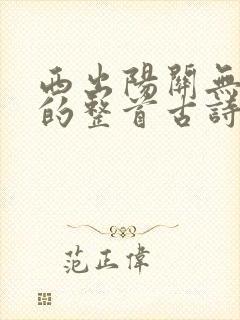 西出陽關無
的整首古詩
范正偉